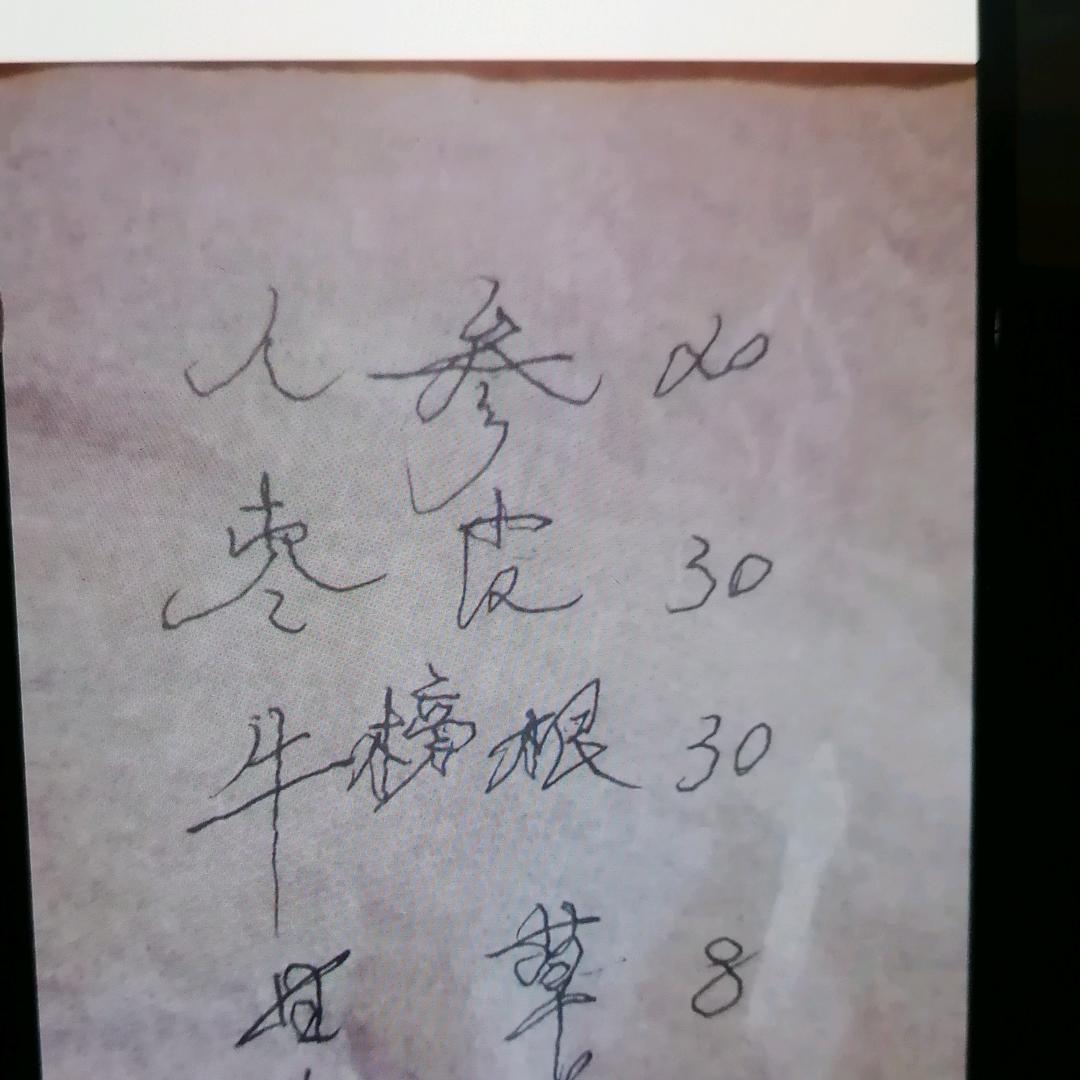 人参 20
枣皮 30
牛榜根 30
甘草 8